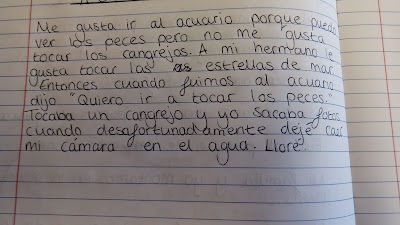 Me gusta ir al acuario porque puedo
ver los peces pero no me gusta
tocar los cangrejos. A mi hermano le
gusta tocar las estrellas de mar.
Entonces cuando fuimos al acuario
dijo "Quiero ir a tocar los peces."
Tocaba un cangrejo y yo sacaba fotos
cuando desafortunadamente dejé caer
mi cámara en el agua. Lloré